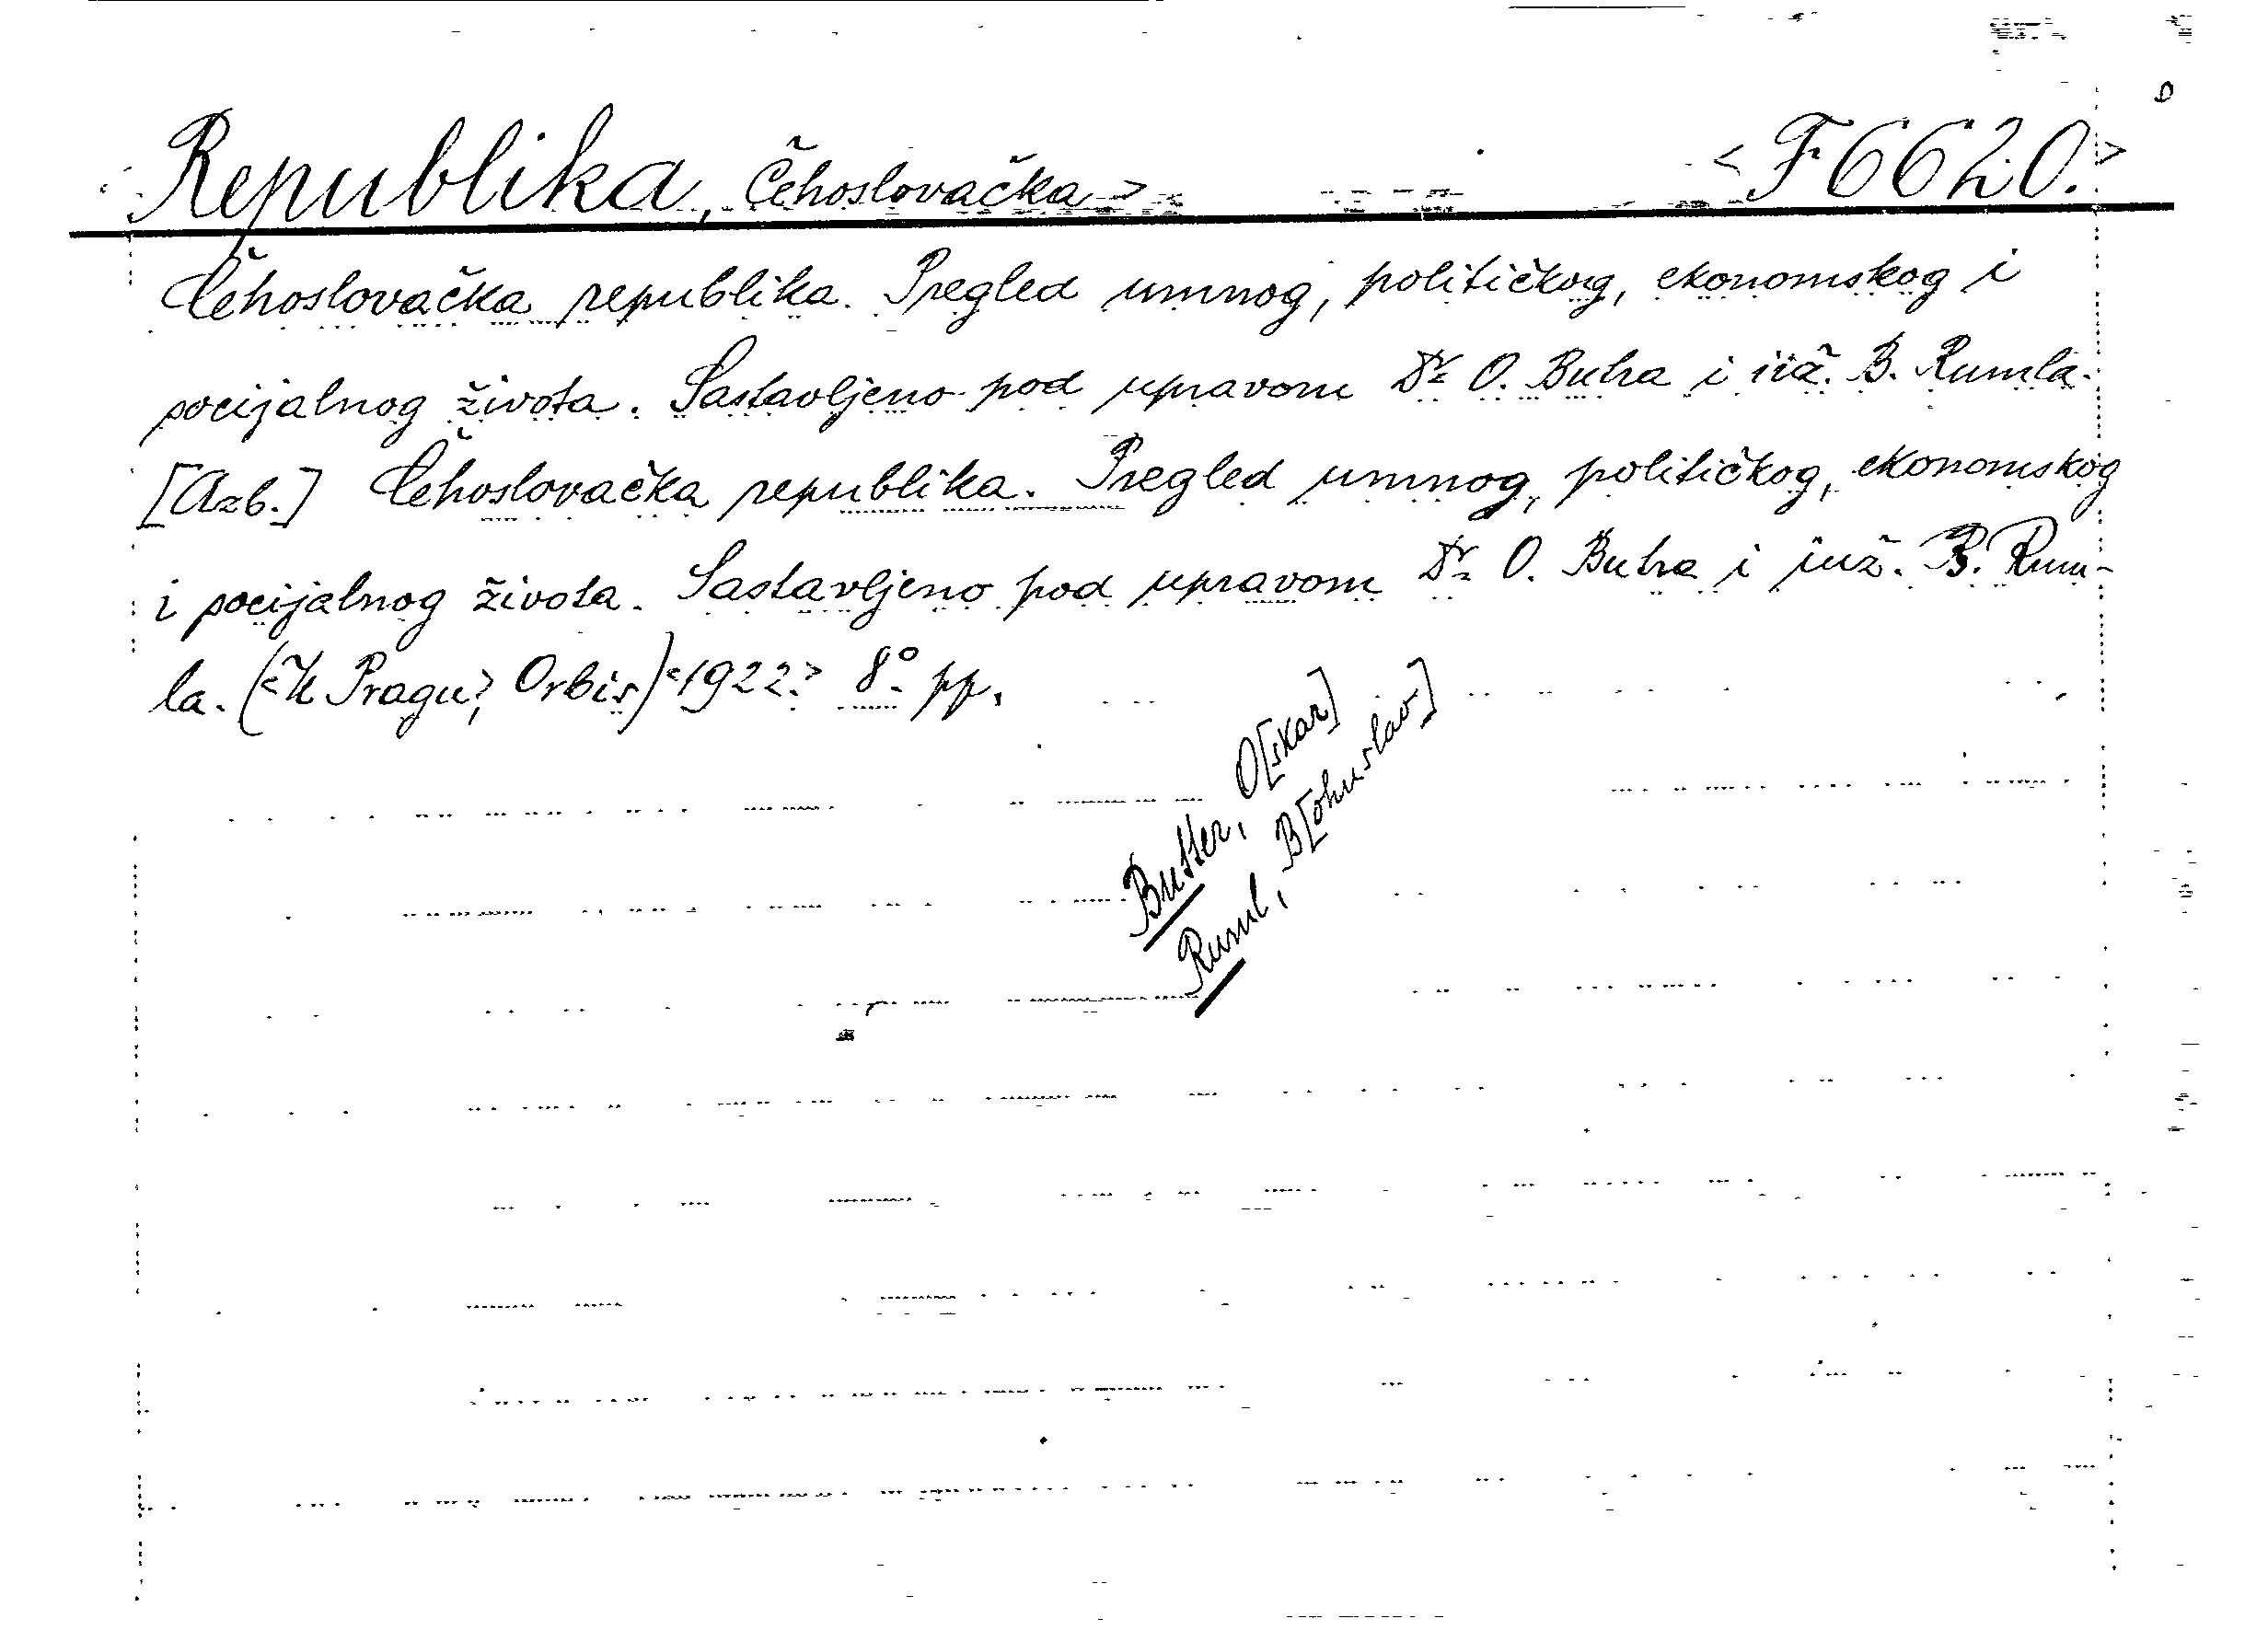 Republika, Čehoslovačka > <F 6620.>
Čehoslovačka republika. Pregled umnog, političkog, ekonomskog i
socijalnog života. Sastavljeno pod upravom Dr. O. Butra i inž. B. Rumla.
[Azb.] Čehoslovačka republika. Pregled umnog, političkog, ekonomskog
i socijalnog života. Sastavljeno pod upravom Dr. O. Butra i inž. B. Rum-
la. (<U Pragu>, Orbis) <1922.> 8°. pp.
Butter, O[skar]
Ruml, B[ohuslav]